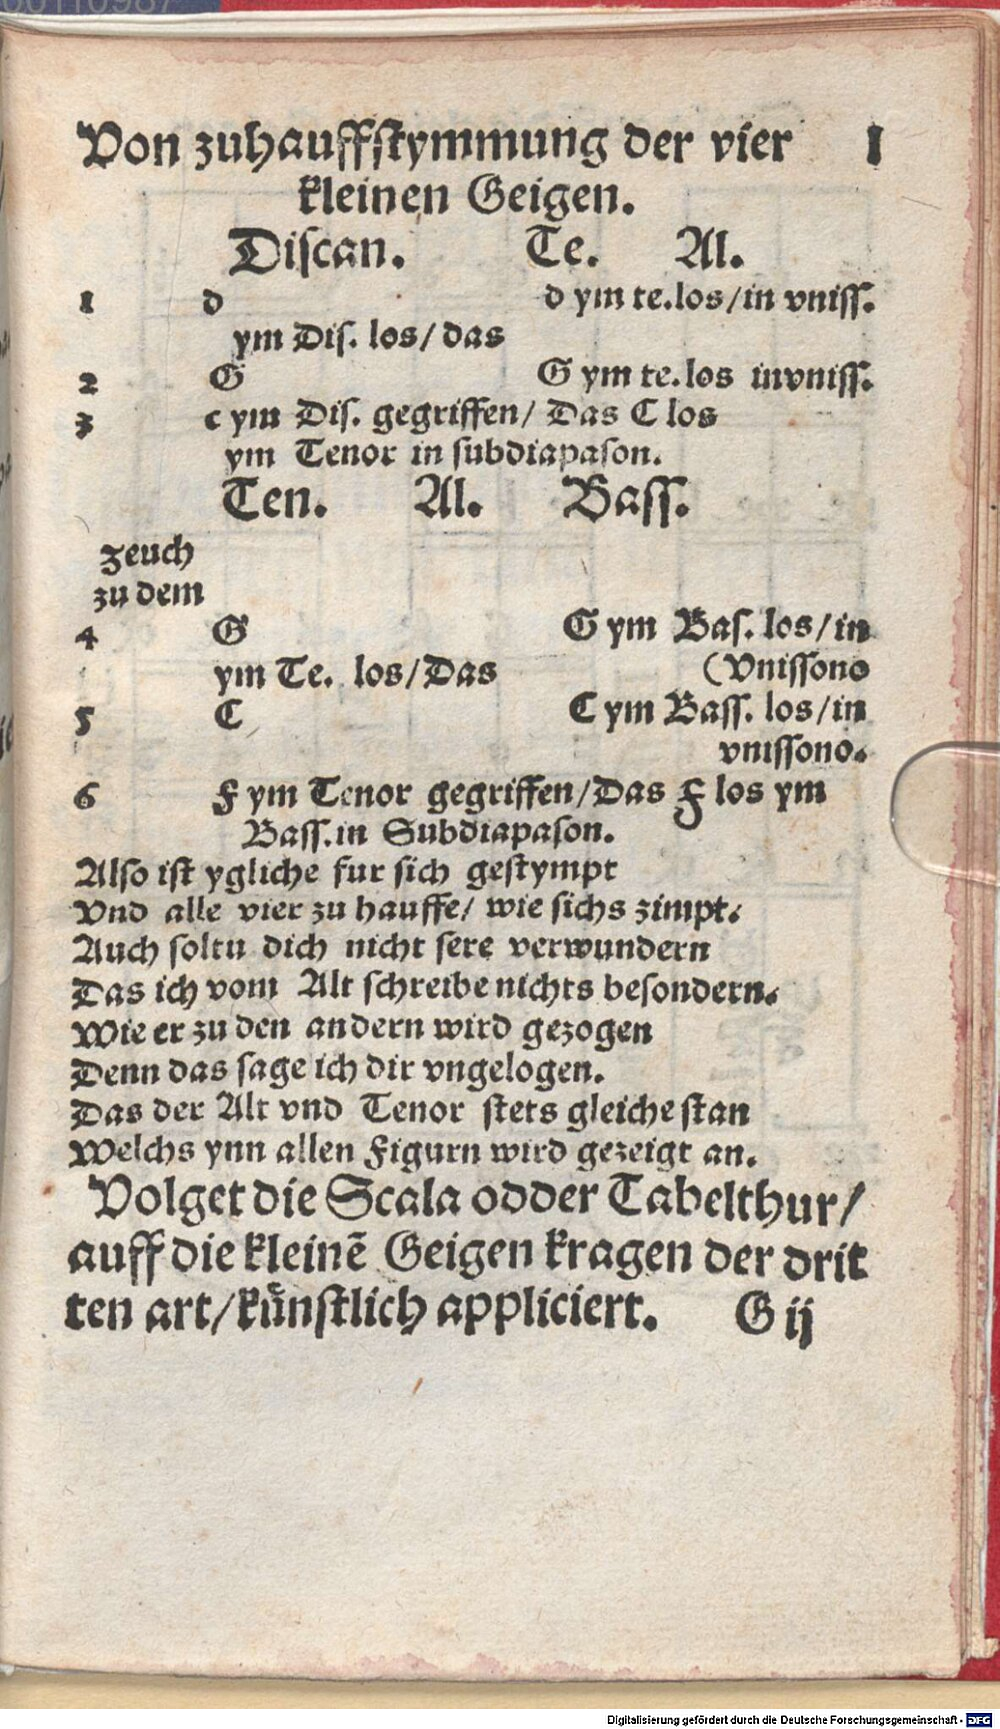 Von zuhauffſtymmung der vier l
kleinen Geigen.
Diſcan. Te. Al.
1 d d ym te.los/in vniſſ.
ym Diſ. los/das
2 G G ym te.los invniſſ.
3 c ym Diſ. gegriffen/ Das C los
ym Tenor in ſubdiapaſon.
Ten. Al. Baſſ.
zeuch
zu dem
4 G G ym Baſ. los/in
ym Te. los/Das (Vniſſono
5 C C ym Baſſ. los/in
vniſſono.
6 F ym Tenor gegriffen/Das F los ym
Baſſ.in Subdiapaſon.
Alſo iſt ygliche fur ſich geſtympt
Vnd alle vier zu hauffe/ wie ſichs zimpt.
Auch ſoltu dich nicht ſere verwundern
Das ich vom Alt ſchreibe nichts beſondern.
Wie er zu den andern wird gezogen
Denn das ſage ich dir vngelogen.
Das der Alt vnd Tenor ſtets gleiche ſtan
Welchs ynn allen Figurn wird gezeigt an.
Volget die Scala odder Tabelthur/
auff die kleinē Geigen kragen der drit
ten art/kuͤnſtlich appliciert. G ij
Digitalisierung gefördert durch die Deutsche Forschungsgemeinschaft - DFG